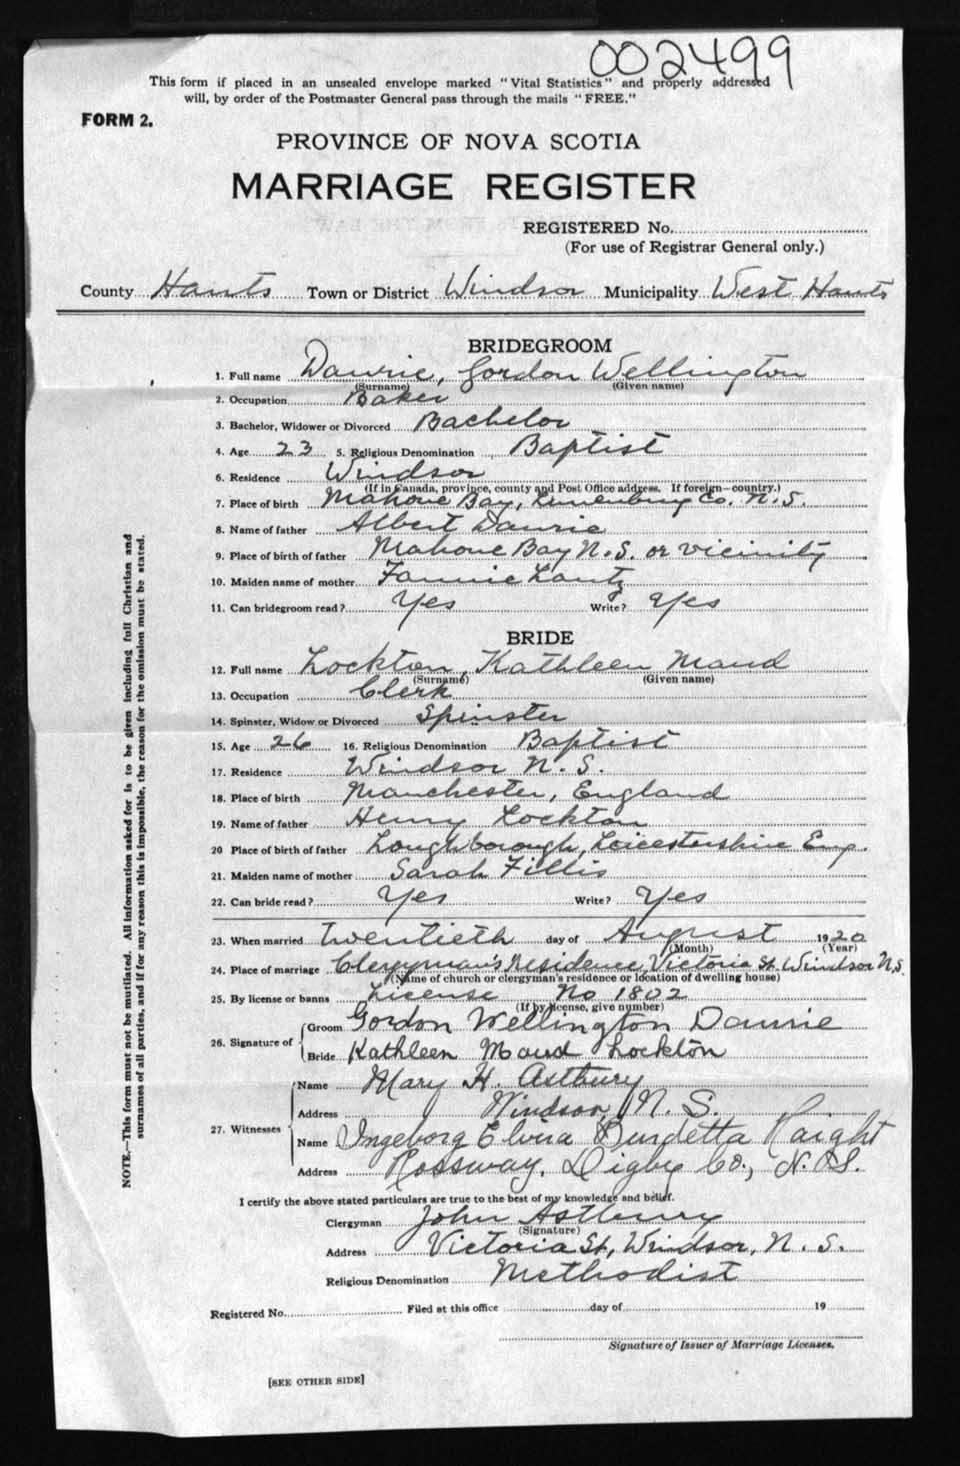 002499
This form if placed in an unsealed envelope marked "Vital Statistics" and properly addressed
will, by order of the Postmaster General pass through the mails "FREE."
FORM 2.
PROVINCE OF NOVA SCOTIA
MARRIAGE REGISTER
REGISTERED No.
(For use of Registrar General only.)
County Hants Town or District Windsor Municipality West Hants
BRIDEGROOM
1. Full name Daurie, Gordon Wellington
(Surname) (Given name)
2. Occupation Baker
3. Bachelor, Widower or Divorced Bachelor
4. Age 23 5. Religious Denomination Baptist
6. Residence Windsor
(If in Canada, province, county and Post Office address. If foreign—country.)
7. Place of birth Mahone Bay, Lunenburg Co. N.S.
8. Name of father Albert Daurie
9. Place of birth of father Mahone Bay N.S. or vicinity
10. Maiden name of mother Fannie Lantz
11. Can bridegroom read? Yes Write? Yes
BRIDE
12. Full name Lockton, Kathleen Maud
(Surname) (Given name)
13. Occupation Clerk
14. Spinster, Widow or Divorced Spinster
15. Age 26 16. Religious Denomination Baptist
17. Residence Windsor N.S.
18. Place of birth Manchester, England
19. Name of father Henry Lockton
20 Place of birth of father Loughborough, Leicestershire Eng.
21. Maiden name of mother Sarah Fillis
22. Can bride read? Yes Write? Yes
23. When married twentieth day of August 1920
(Month) (Year)
24. Place of marriage Clergyman's Residence, Victoria St. Windsor N.S.
(Name of church or clergyman's residence or location of dwelling house)
25. By license or banns License No 1802
(If by license, give number)
26. Signature of Groom Gordon Wellington Daurie
Bride Kathleen Maud Lockton
27. Witnesses Name Mary H. Astbury
Address Windsor, N.S.
Name Ingeborg Elvira Burdetta Raight
Address Rossway, Digby Co., N.S.
I certify the above stated particulars are true to the best of my knowledge and belief.
Clergyman John Astbury
(Signature)
Address Victoria St., Windsor, N.S.
Religious Denomination Methodist
Registered No. Filed at this office day of 19
Signature of Issuer of Marriage Licenses.
[SEE OTHER SIDE]
NOTE.—This form must not be mutilated. All information asked for is to be given including full Christian and
surnames of all parties, and if for any reason this is impossible, the reason for the omission must be stated.